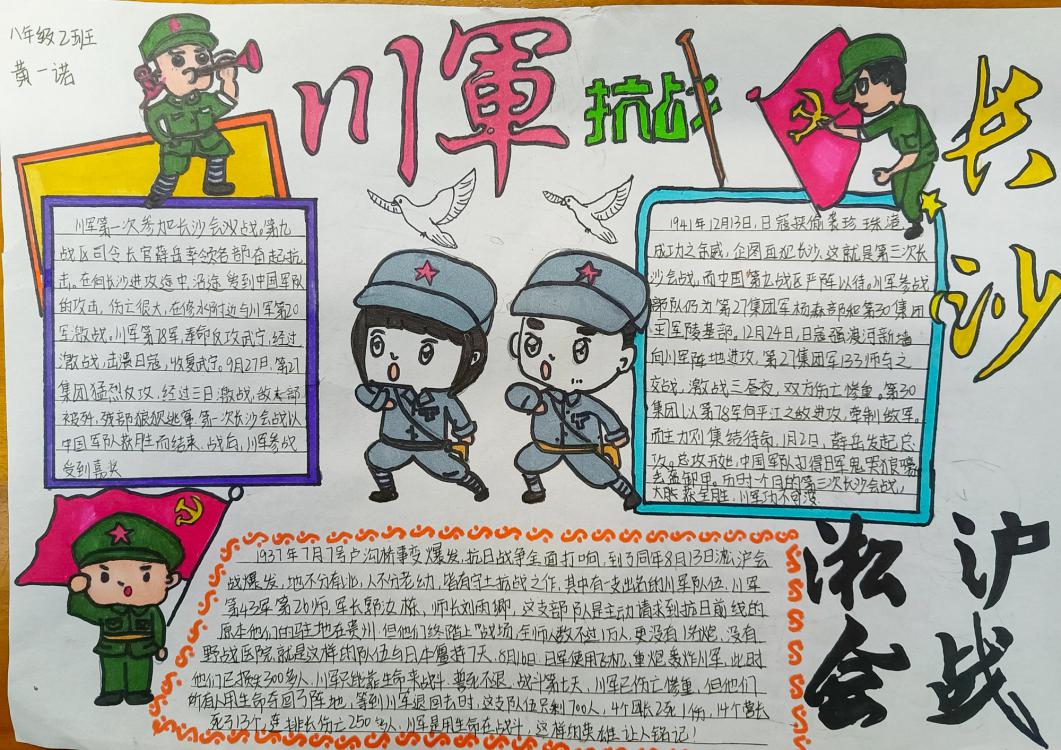 八年级乙班
黄一诺
川軍抗战
长沙
川军第一次参加长沙会战。第九
战区司令长官薛岳率领各部奋起抗
击,在向长沙进攻途中,沿途受到中国军队
的攻击,伤亡很大,在修水附近与川军第20
军激战。川军第78军奉命反攻武宁,经过
激战,击溃日寇,收复武宁。9月27日,第27
集团猛烈反攻,经过三日激战,敌大部
被歼,残部狼狈逃窜。第一次长沙会战以
中国军队获胜而结束,战后,川军参战
受到嘉奖
1941年12月13日,日寇探偷袭珍珠港
成功之余威,企图再犯长沙。这就是第三次长
沙会战,而中国第九战区严阵以待。川军参战
部队仍为第27集团军杨森部和第30集团
王军陵基部。12月24日,日寇强渡河新墙
向川军阵地进攻,第27集团军133师与之
交战,激战三昼夜,双方伤亡惨重。第30
集团以第78军向平江之敌进攻,牵制敌军。
而主力则集结待命,1月2日,薛岳发起总
攻。总攻开始,中国军队打得日军鬼哭狼嚎
丢盔卸甲。历时个月的第三次长沙会战,
大胜获全胜,川军功不可没
淞沪会战
1937年7月7号卢沟桥事变爆发,抗日战争全面打响,到了同年8月13日淞沪会
战爆发,地不分南北,人不分老幼,皆有守土抗战之作,其中有一支出名的川军队伍,川军
第43军第26师,军长郭汝栋,师长刘雨卿,这支部队是主动请求到抗日前线的
原本他们的驻地在贵州,但他们终踏上了战场,全师人数不过1万人,更没有1名炮,没有
野战医院,就是这样的队伍与日本僵持7天,8月16日,日军使用飞机,重炮轰炸川军,此时
他们已损失300多人,川军只能靠生命来战斗,誓死不退,战斗第七天,川军已伤亡惨重,但他们
所有人用生命夺回了阵地,等到川军退回去时,这支队伍只剩700人,4个团长2死1伤,14个营长
死了13个,连排长伤亡250多人,川军是用生命在战斗,这样的英雄让人铭记!